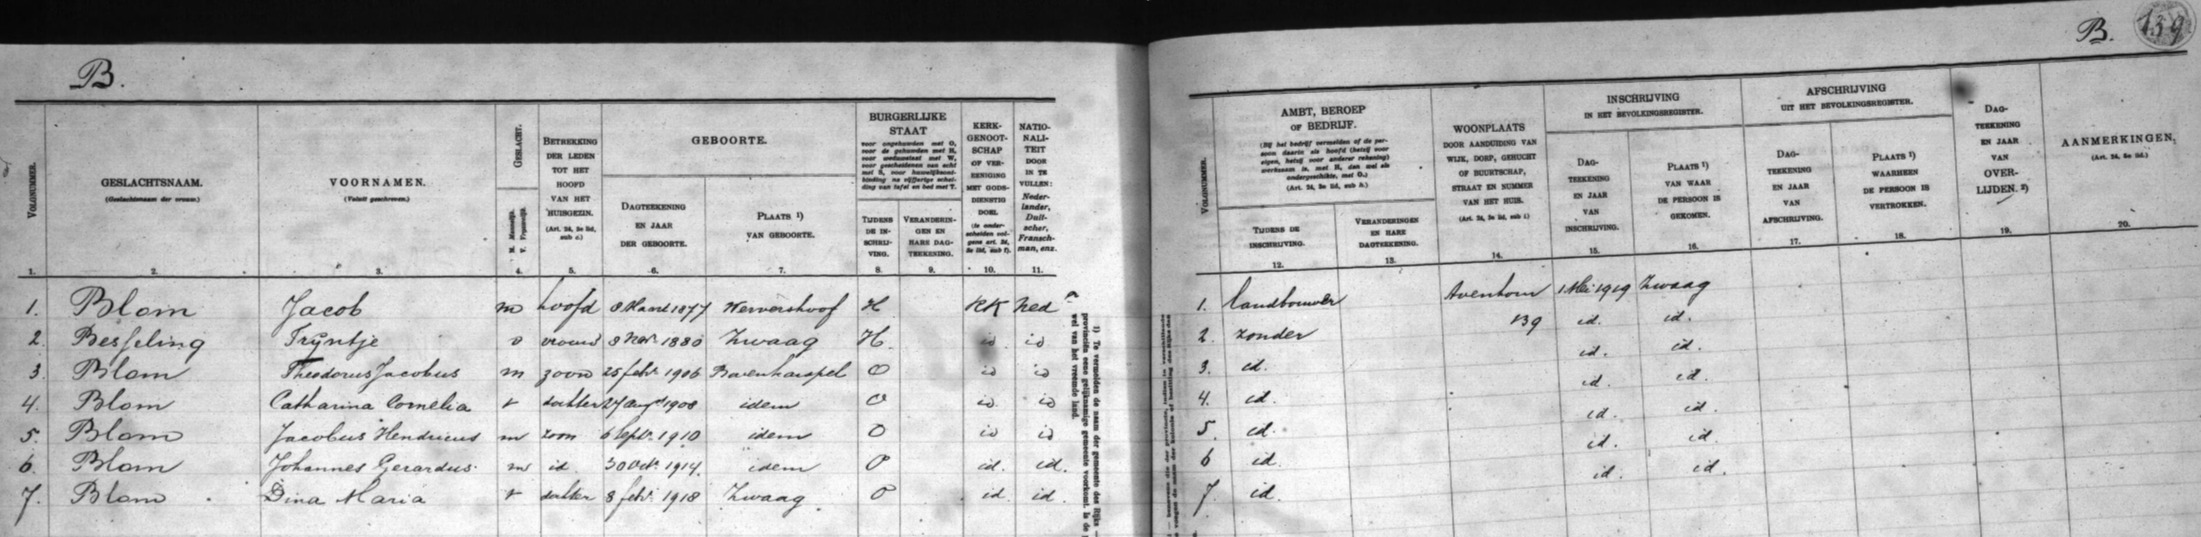 B.
B. 139
VOLGNUMMER.
GESLACHTSNAAM.
(Geslachtsnaam der vrouw.)
VOORNAMEN.
(Voluit geschreven.)
GESLACHT.
M. Mannelijk.
V. Vrouwelijk.
BETREKKING
DER LEDEN
TOT HET
HOOFD
VAN HET
HUISGEZIN.
(Art. 24, 3e lid,
sub c.)
GEBOORTE.
DAGTEEKENING
EN JAAR
DER GEBOORTE.
PLAATS 1)
VAN GEBOORTE.
BURGERLIJKE
STAAT
TIJDENS
DE IN-
SCHRIJ-
VING.
VERANDERIN-
GEN EN
HARE DAG-
TEEKENING.
KERK-
GENOOT-
SCHAP
OF VER-
EENIGING
MET GODS-
DIENSTIG
DOEL
NATIO-
NALI-
TEIT
DOOR
IN TE
VULLEN:
Neder-
lander,
Duit-
scher,
Fransch-
man, enz.
1. 2. 3. 4. 5. 6. 7. 8. 9. 10. 11.
1. Blom Jacob m hoofd 8 Maart 1877 Wervershoof H RK Ned
2. Besseling Trijntje v vrouw 8 Nov. 1880 Zwaag H. id. id
3. Blom Theodorus Jacobus m zoon 25 febr. 1906 Bovenkarspel O id id
4. Blom Catharina Cornelia v dochter 27 Aug. 1908 idem O id id
5. Blom Jacobus Hendricus m zoon 6 Sept. 1910 idem O id id
6. Blom Johannes Gerardus m id 30 Oct. 1914. idem O id. id.
7. Blom Dina Maria v dochter 8 febr. 1918 Zwaag O id. id.
1) Te vermelden de naam der gemeente des Rijks —
provinciën eene gelijknamige gemeente voorkomt. Is de
wel van het vreemde land.
VOLGNUMMER.
AMBT, BEROEP
OF BEDRIJF.
(Bij het bedrijf vermelden of de per-
soon daarin als hoofd (hetzij voor
eigen, hetzij voor anderer rekening)
werkzaam is, met H, dan wel als
ondergeschikte, met O.)
(Art. 24, 3e lid, sub h.)
TIJDENS DE
INSCHRIJVING.
VERANDERINGEN
EN HARE
DAGTEEKENING.
WOONPLAATS
DOOR AANDUIDING VAN
WIJK, DORP, GEHUCHT
OF BUURTSCHAP,
STRAAT EN NUMMER
VAN HET HUIS.
(Art. 24, 3e lid, sub i.)
INSCHRIJVING
IN HET BEVOLKINGSREGISTER.
DAG-
TEEKENING
EN JAAR
VAN
INSCHRIJVING.
PLAATS 1)
VAN WAAR
DE PERSOON IS
GEKOMEN.
AFSCHRIJVING
UIT HET BEVOLKINGSREGISTER.
DAG-
TEEKENING
EN JAAR
VAN
AFSCHRIJVING.
PLAATS 1)
WAARHEEN
DE PERSOON IS
VERTROKKEN.
DAG-
TEEKENING
EN JAAR
VAN
OVER-
LIJDEN. 2)
AANMERKINGEN,
(Art. 24, 3e lid.)
12. 13. 14. 15. 16. 17. 18. 19. 20.
1. landbouwer Avenhorn 1 Mei 1919 Zwaag
2. zonder 139 id. id.
3. id. id. id.
4. id. id. id.
5. id. id. id.
6 id. id. id.
7. id. id. id.